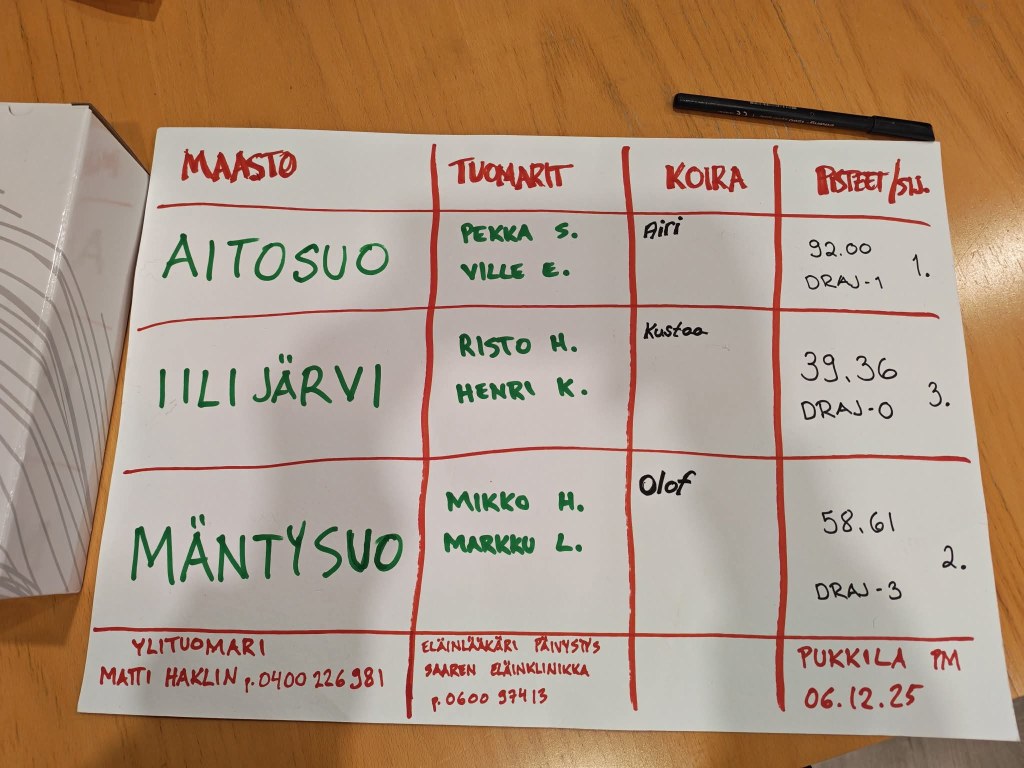 MAASTO
TUOMARIT
KOIRA
PISTEET/SIJ.
AITOSUO
PEKKA S.
VILLE E.
Airi
92.00
DRAJ-1
1.
IILIJÄRVI
RISTO H.
HENRI K.
Kustaa
39,36
DRAJ-0
3.
MÄNTYSUO
MIKKO H.
MARKKU L.
Olof
58,61
DRAJ-3
2.
YLITUOMARI
MATTI HAKLIN p.0400 226981
ELÄINLÄÄKÄRI PÄIVYSTYS
SAAREN ELÄINKLINIKKA
p.0600 97413
PUKKILA PM
06.12.25